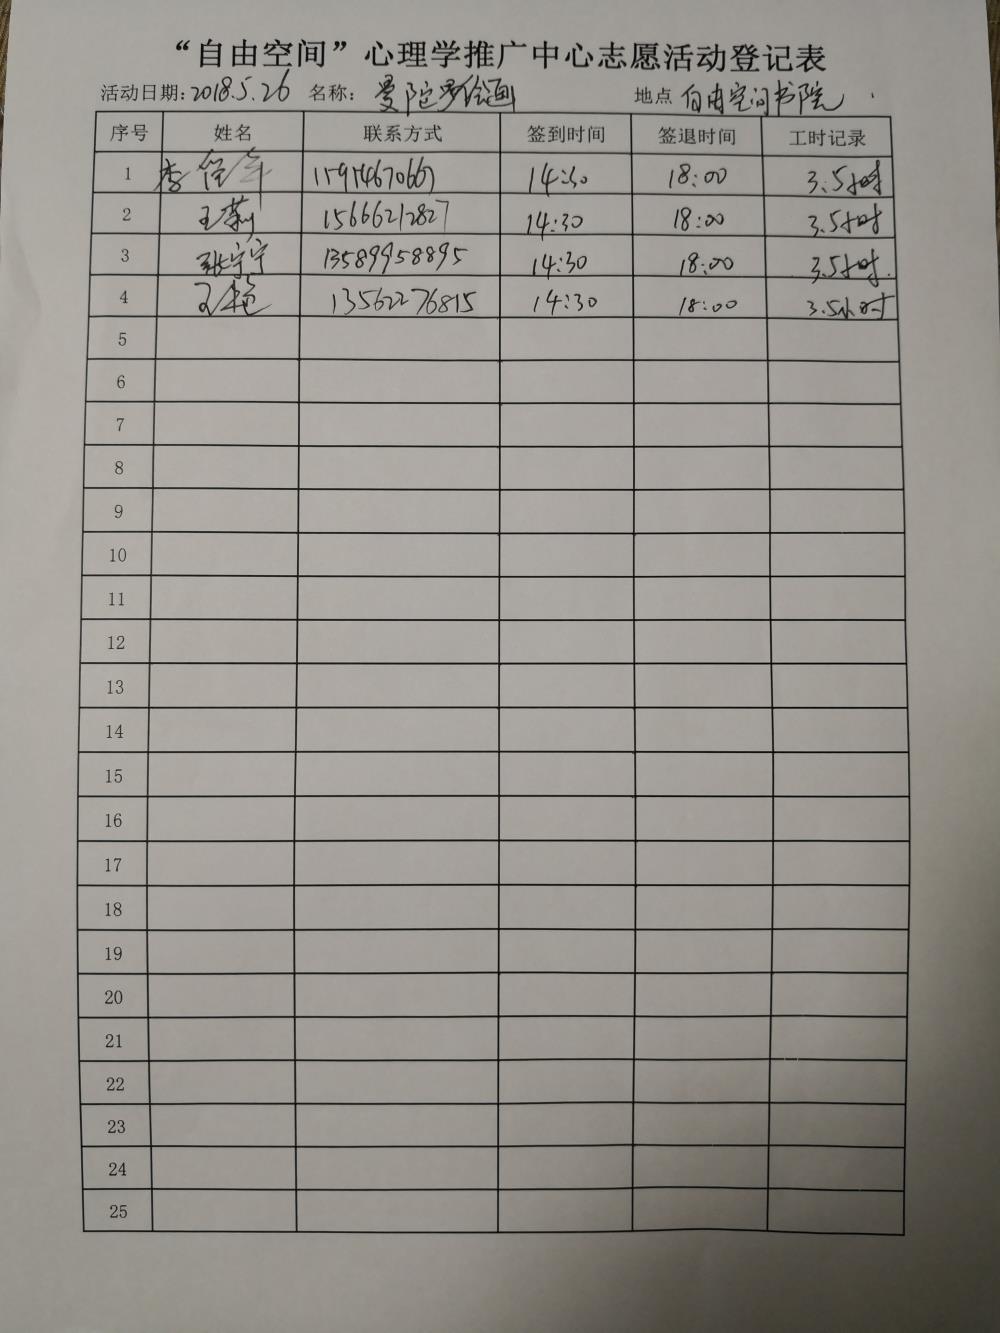 “自由空间”心理学推广中心志愿活动登记表
活动日期:2018.5.26 名称: 曼陀罗绘画 地点 自由空间书院
序号 姓名 联系方式 签到时间 签退时间 工时记录
1 李 14:30 18:00 3.5小时
2 王莉 15666212827 14:30 18:00 3.5小时
3 张宁宁 13589958895 14:30 18:00 3.5小时.
4 王艳 13562276815 14:30 18:00 3.5小时
5
6
7
8
9
10
11
12
13
14
15
16
17
18
19
20
21
22
23
24
25